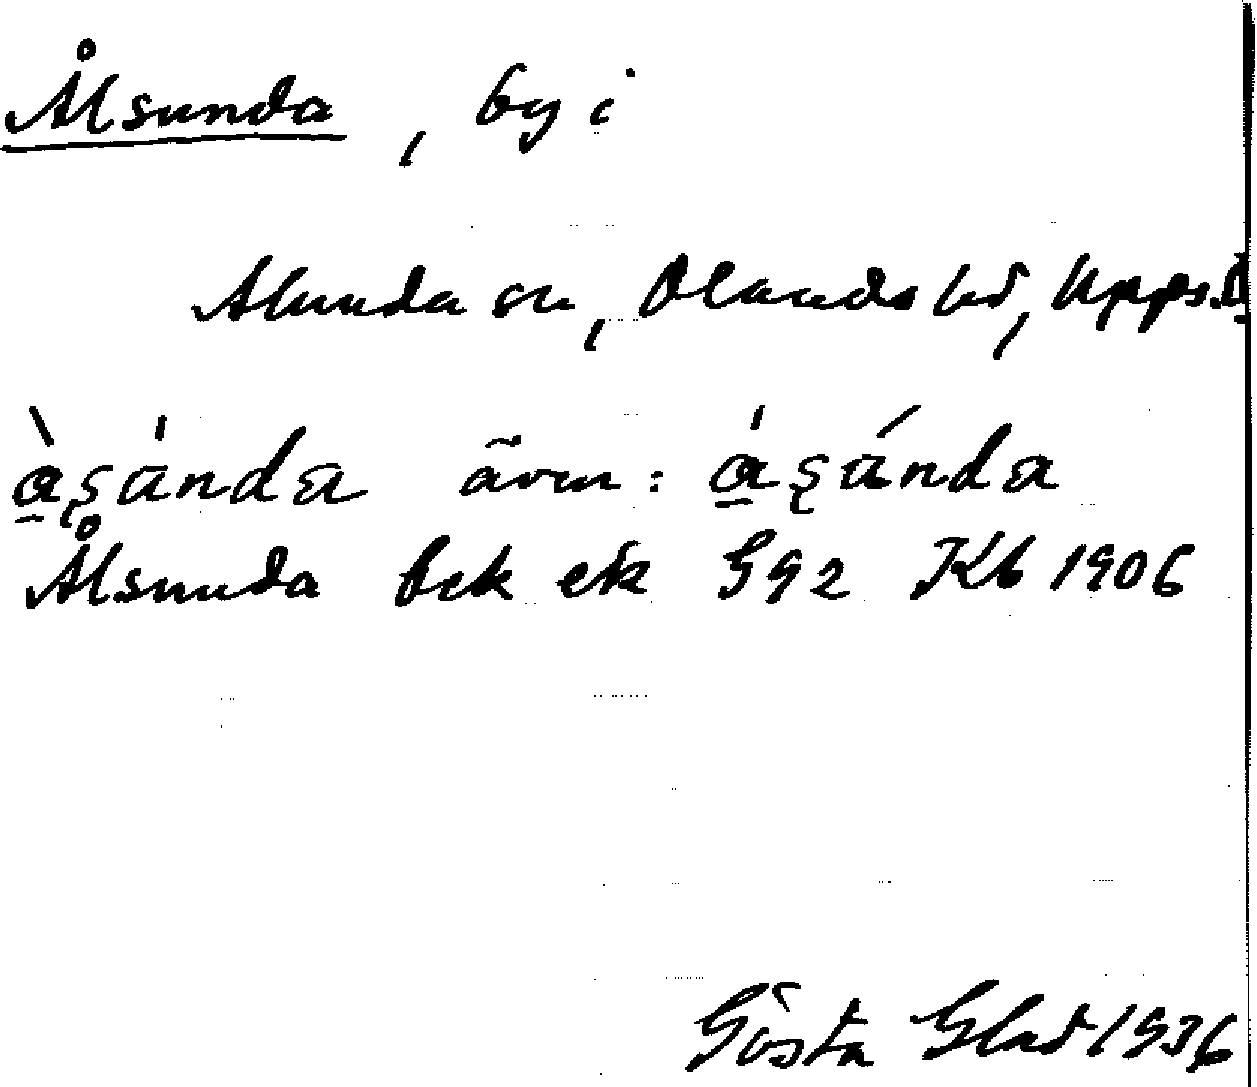 Ålsunda, by i
Alunda sn, Olands hd, Upps.l
även:
Ålsunda bek ek G92 Kb 1906
Gösta Glad 1936